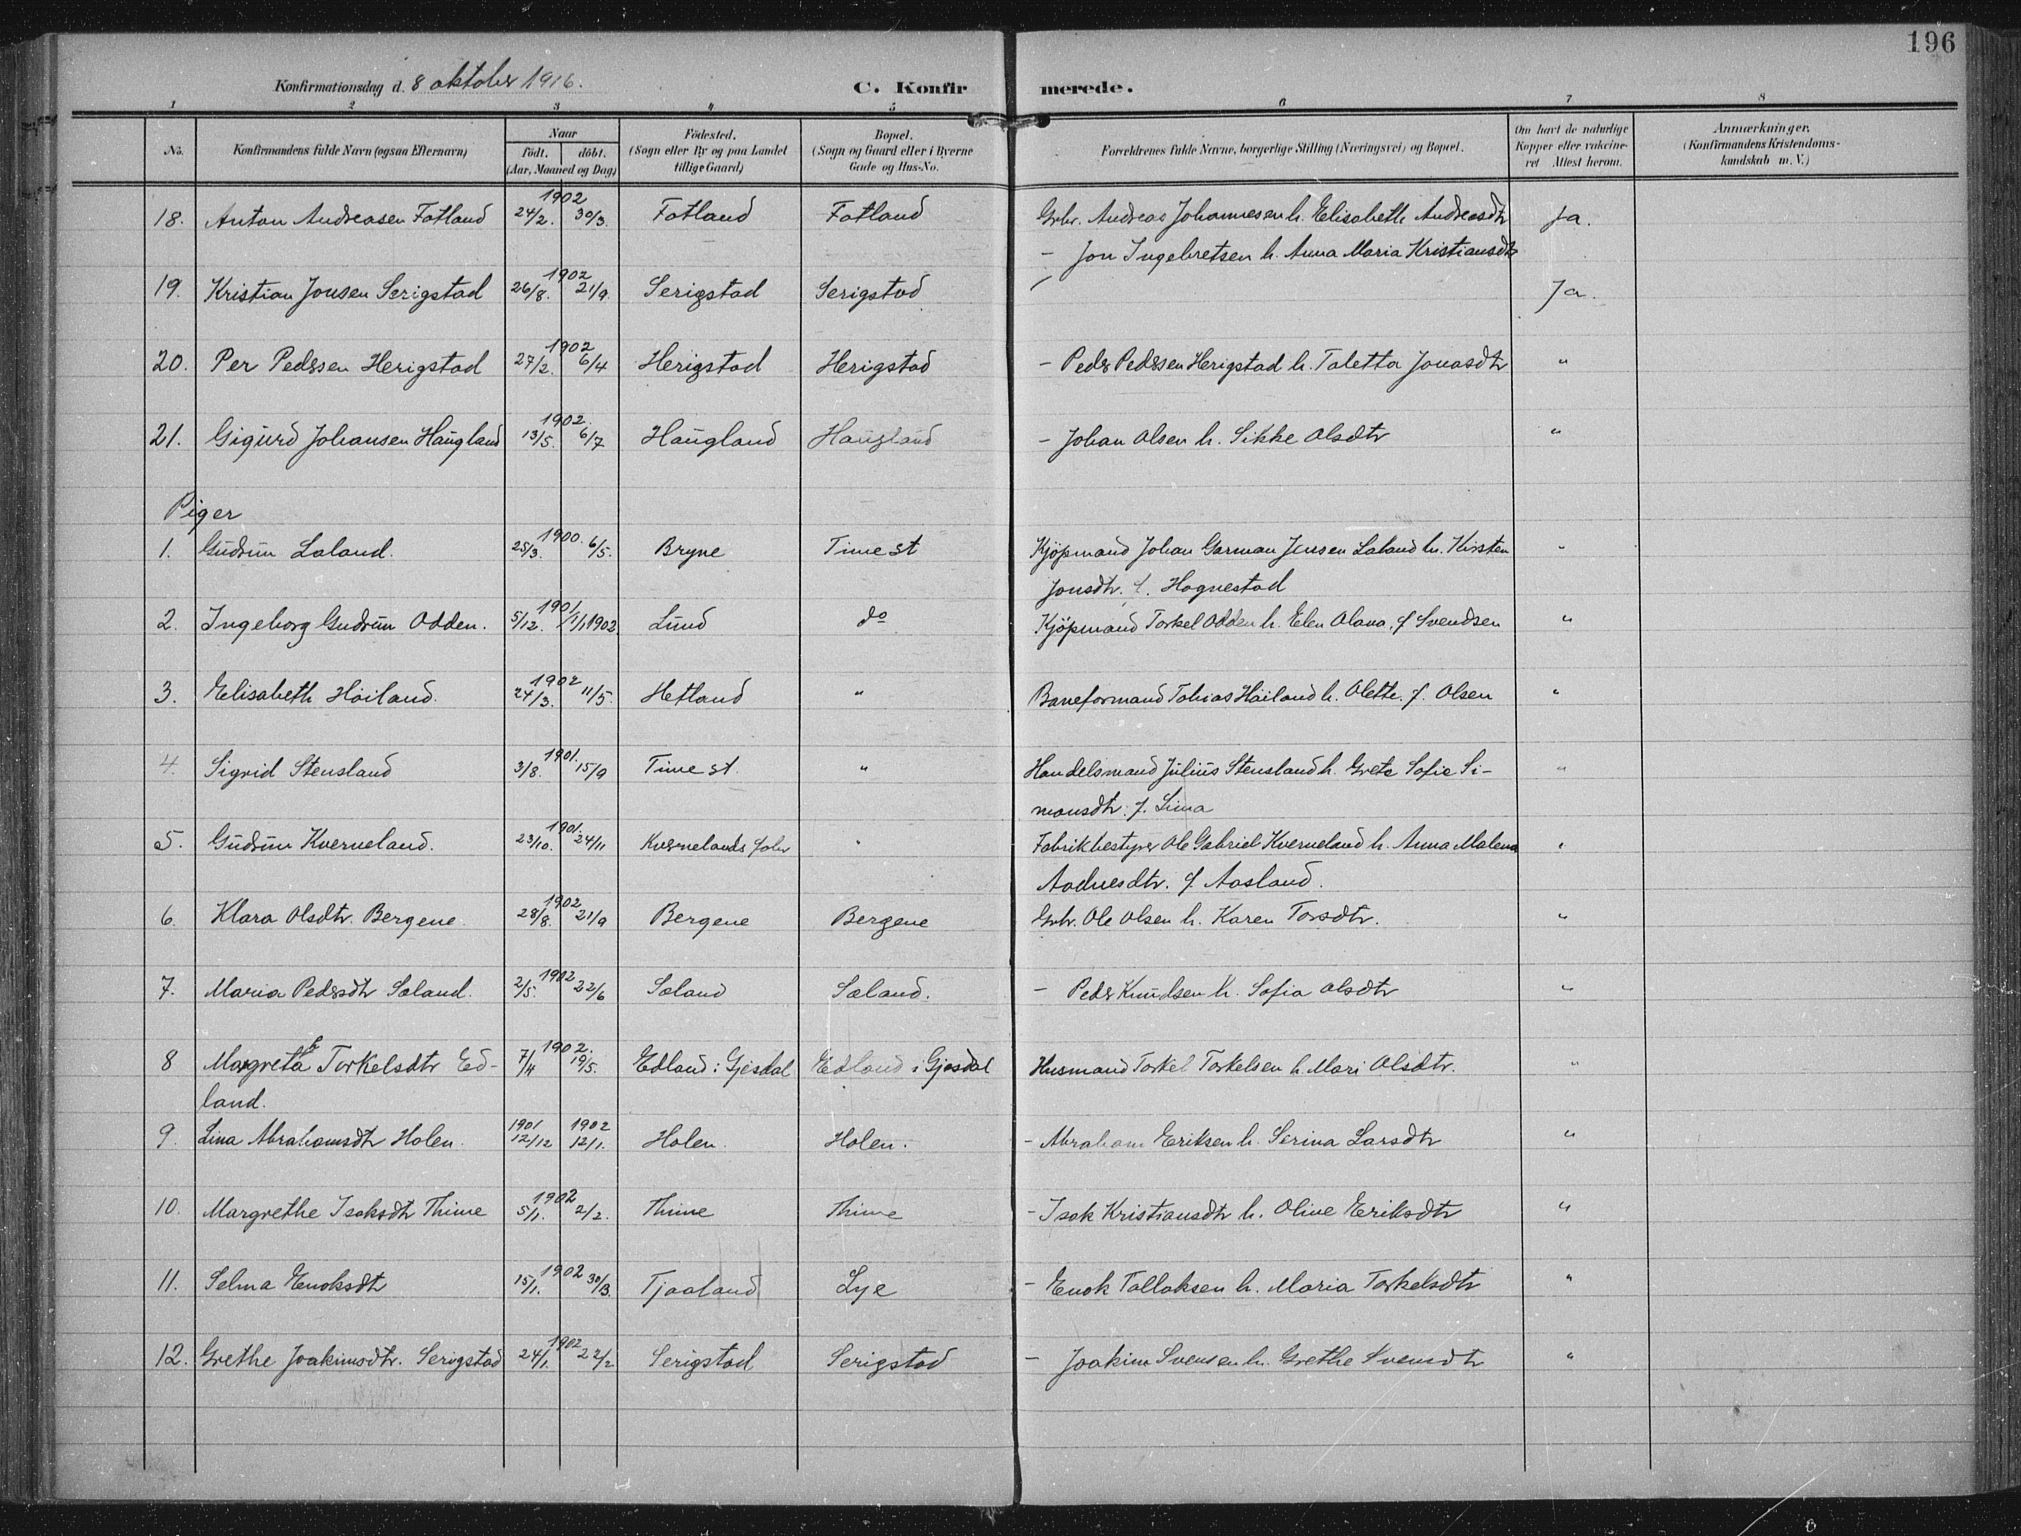 196
Konfirmationsdag d. 8 oktober 1916.
C. Konfirmerede.
1 2 3 4 5 6 7 8
No. Konfirmandens fulde Navn (ogsaa Efternavn) Naar født. døbt. (Aar, Maaned og Dag) Födested. (Sogn eller By og paa Landet tillige Gaard) Bopæl. (Sogn og Gaard eller i Byerne Gade og Hus-No. Forældrenes fulde Navne, borgerlige Stilling (Næringsvei) og Bopæl. Om havt de naturlige Kopper eller vakcineret Attest herom. Anmærkninger. (Konfirmandens Kristendomskundskab m. V.)
18. Anton Andreasen Fotland 1902 24/2. 30/3. Fotland Fotland Grbr. Andreas Johannesen h. Elisabeth Andreasdtr Ja.
19. Kristian Jonsen Serigstad 1902 26/8. 21/9. Serigstad Serigstad - Jon Ingebretsen h. Anna Maria Kristiansdtr Ja.
20. Per Pedersen Herigstad 1902 27/2. 6/4 Herigstad Herigstad - Peder Pedersen Herigstad h. Taletta Jonasdtr "
21. Sigurd Johansen Haugland 1902. 13/5. 6/7 Haugland Haugland - Johan Olsen h. Sikke Olsdtr "
Piger
1. Gudrun Laland. 1900. 25/3. 6/5. Bryne Time st Kjöpmand Johan Garman Jensen Laland h. Kirsten "
Jonsdtr. f. Hognestad
2. Ingeborg Gudrun Odden. 1901 5/12. 1/1 1902 Lund do Kjöpmand Torkel Odden h. Elen Olava. f Svendsen "
3. Elisabeth Höiland. 1902 24/3. 11/5. Hetland " Baneformand Tobias Höiland h. Olette. f. Olsen "
4. Sigrid Stensland 1901. 3/8. 15/9 Time st. " Handelsmand Julius Stensland h. Grete Sofie Si- "
monsdtr. f. Lima
5. Gudrun Kverneland. 1901. 23/10. 24/11 Kvernelands fabr " Fabrikbestyrer Ole Gabriel Kverneland h. Anna Malena "
Aadnesdtr. f. Aasland.
6. Klara Olsdtr. Bergene. 1902 28/8. 21/9 Bergene Bergene Grbr. Ole Olsen h. Karen Torsdtr. "
7. Maria Pedersdtr Sæland. 1902 2/5. 22/6 Sæland Sæland. - Peder Knudsen h. Sofia Olsdtr "
8 Margreta Torkelsdtr Ed- 1902. 7/4 19/5. Edland i Gjesdal Edland i Gjesdal Husmand Torkel Torkelsen h. Mari Olsdtr. "
land.
9. Lina Abrahamsdtr Holen. 1901 12/12 1902 12/1. Holen. Holen. - Abraham Eriksen h. Serina Larsdtr "
10. Margrethe Isaksdtr Thime 1902 5/1. 2/2. Thime Thime - Isak Kristiansdtr h. Oline Eriksdtr "
11. Selma Enoksdtr 1902 15/1. 30/3. Tjaaland Lye - Enok Tollaksen h. Maria Torkelsdtr "
12. Grethe Joakimsdtr. Serigstad 1902 24/1. 22/2 Serigstad Serigstad - Joakim Svensen h. Grethe Svensdtr "